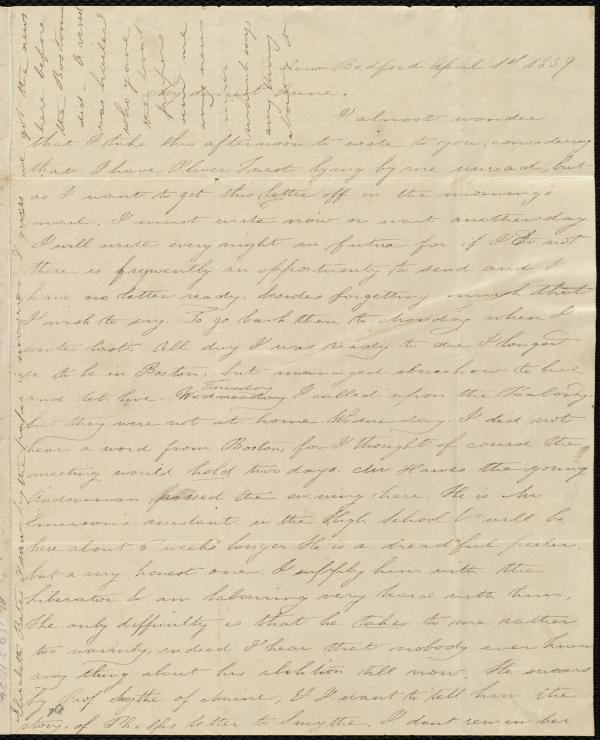 New Bedford April 1st 1839
My dearest Anne.
I almost wonder
that I take this afternoon to write to you, considering
that I have Oliver Twist lying by me unread, but
as I want to get this letter off in the morning's
mail. I must write now or wait another day
I will write every night in future for if I do not
there is frequently an opportunity to send and I
have no letter ready, besides forgetting much that
I wish to say. To go back then to Monday when I
wrote last. All day I was ready to die I longed
so to be in Boston, but managed somehow to live
and let live. Tuesday I called upon the
but they were not at home. Wednesday. I did not
hear a word from Boston, for I thought of course the
meeting would hold two days. Mr Hawes the young
Andoverman passed the evening here. He is Mr
Emerson's assistant in the High School & will be
here about 6 weeks longer. He is a dreadful
but a very honest one. I supply him with the
Liberator & am labouring very hard with him.
The only difficulty is that he takes to me rather
too warmly, indeed I hear that nobody ever knew
any thing about his abolition till now. He swears
by Prof Smythe of Maine, & I want to tell him the
story of Phelps letter to Smythe. I dont remember
we got the news
here before
the Boston
did
was
who gave
the
send me
any new
any thing
about it